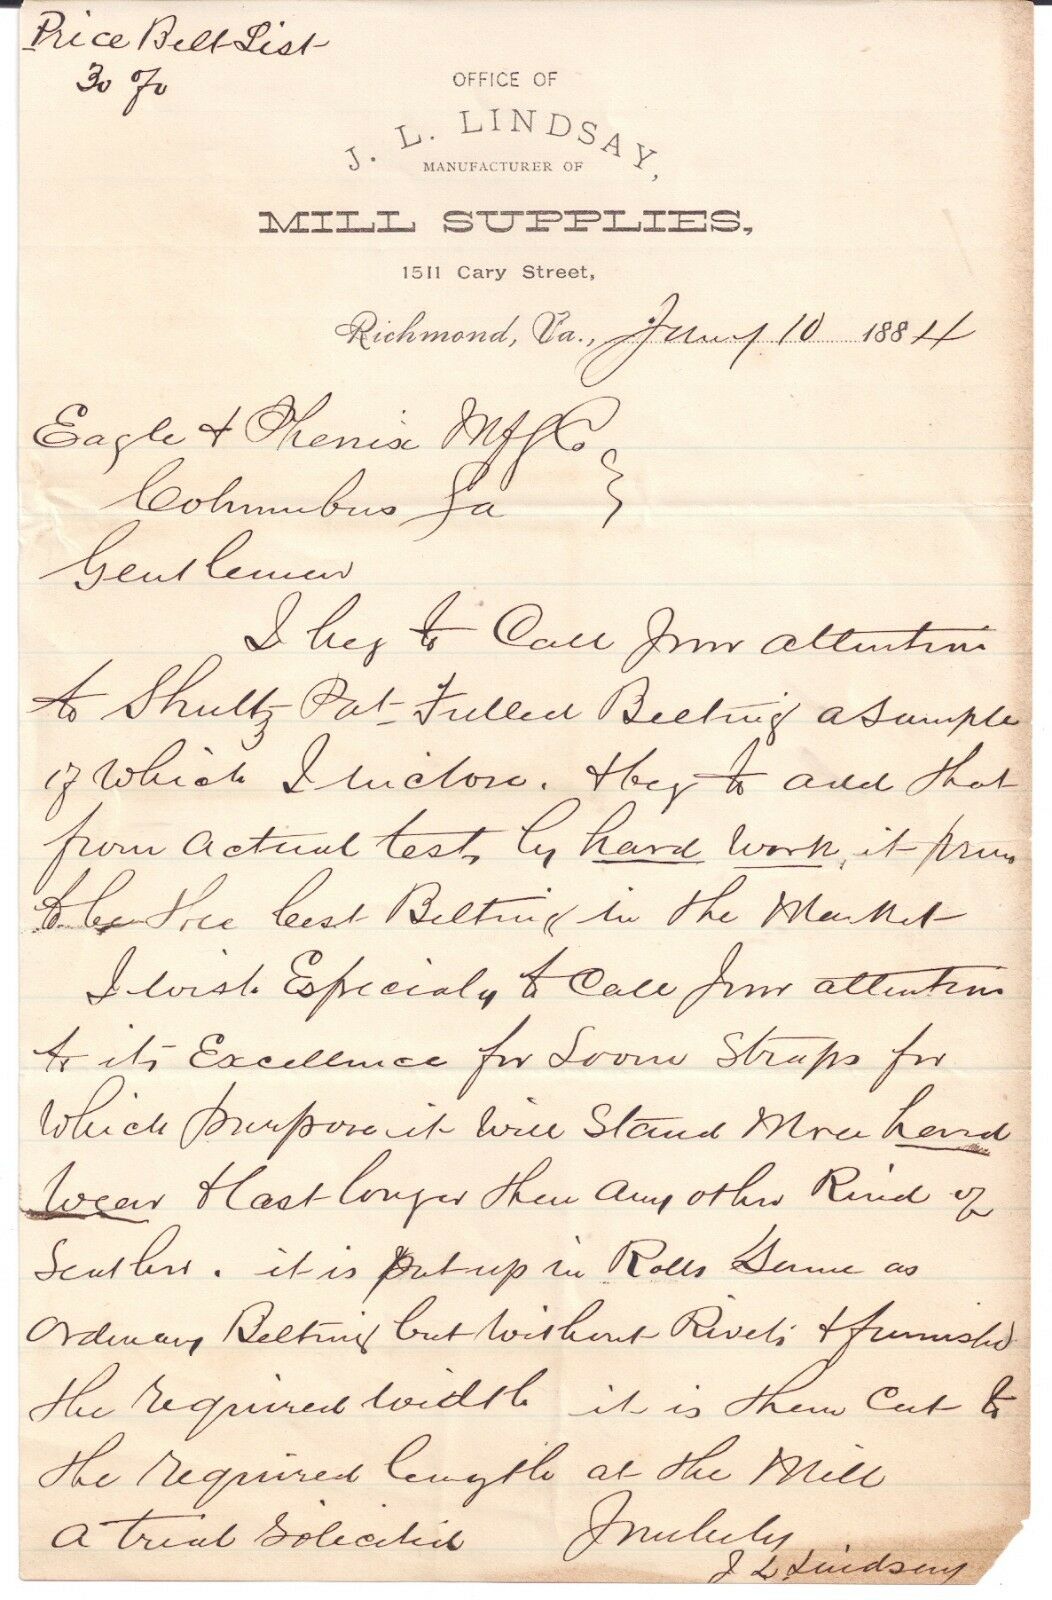 Price Belt List
30 %
OFFICE OF
J. L. LINDSAY,
MANUFACTURER OF
MILL SUPPLIES,
1511 Cary Street,
Richmond, Va., 10 1884
Eagle & Phenix Mfg Co
Columbus Ga
Gentlemen
I beg to Call your attention
to Shultz Pat Fulled Belting a sample
of which I inclose. & beg to add that
from actual tests by hard work, it proves
to be the best Belting in the Market
I wish Especialy to Call your attention
to its Excellence for Loom Straps for
which purpose it will Stand More hard
wear & last longer then any other Kind of
Leather. it is put up in Rolls Same as
ordinary Belting but without Rivets & furnished
the required width it is then Cut to
the required length at the Mill
a trial Solicited Yours truly
J L Lindsay